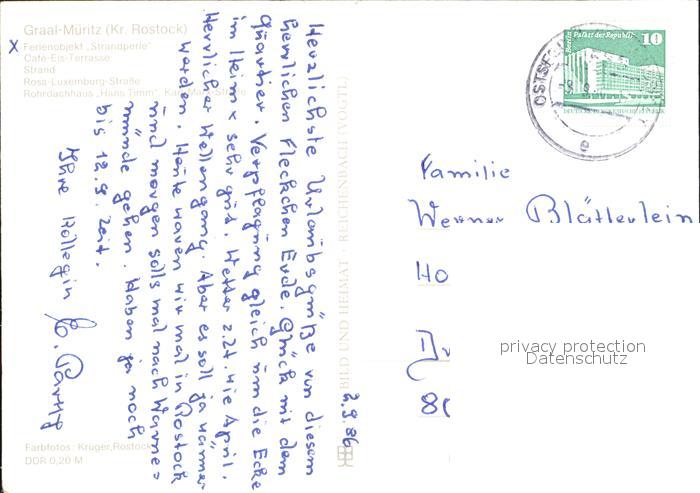 Graal-Müritz (Kr. Rostock)
x Ferienobjekt „Strandperle"
Café-Eis-Terrasse
Strand
Rosa-Luxemburg-Straße
Rohrdachhaus „Hans Timm", Karl-Marx-Straße
2.9.86
Herzlichste Urlaubsgrüße von diesem
herrlichen Fleckchen Erde. Glück mit dem
Quartier. Verpflegung gleich um die Ecke
im Heim x sehr gut. Wetter z.Zt. wie April.
Herrlicher Wellengang. Aber es soll ja wärmer
werden. Heute waren wir mal in Rostock
und morgen solls mal nach Warne=
münde gehen. Haben ja noch
bis 12.9. Zeit.
Ihre Kollegin
Farbfotos: Krüger, Rostock
DDR 0,20 M
BILD UND HEIMAT · REICHENBACH (VOGTL)
Berlin Palast der Republik 10
DEUTSCHE DEMOKRATISCHE REPUBLIK
OSTSEE
e
Familie
Werner Blätterlein
HO
80
privacy protection
Datenschutz